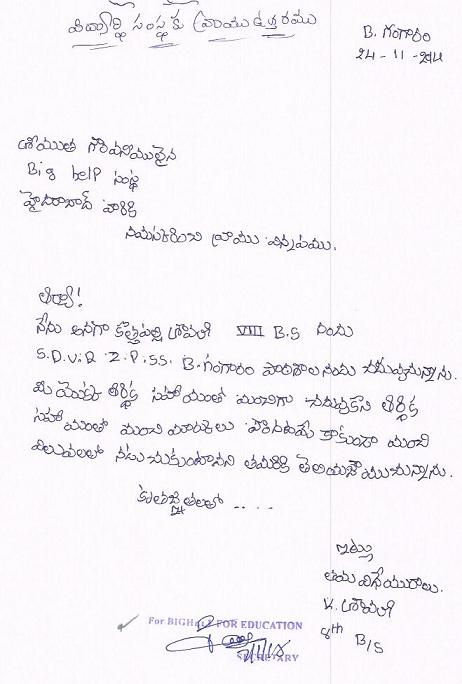 విద్యార్థి సంస్థకు వ్రాయు ఉత్తరము
B. గంగారం
24-11-2014
శ్రీయుత గౌరవనీయులైన
Big help సంస్థ
హైదరాబాద్ వారికి
నమస్కరించి వ్రాయు విన్నపము.
ఆర్యా!
నేను అనగా కొత్తపల్లి శ్రావణి VIII B.S నందు
S.D.V.R Z.P.SS. B.గంగారం పాఠశాల నందు చదువుచున్నాను.
మీ యొక్క ఆర్థిక సహాయంతో మంచిగా చదువుకొని ఆర్థిక
సహాయంతో మంచి మార్కులు పొందడమే కాకుండా మంచి
విలువలలో నడుచుకుంటానని తమరికి తెలియజేయుచున్నాను.
కృతజ్ఞతలతో ....
ఇట్లు
తమ విధేయురాలు.
K. శ్రావణి
8th B/S
For BIGHelp FOR EDUCATION
SECRETARY